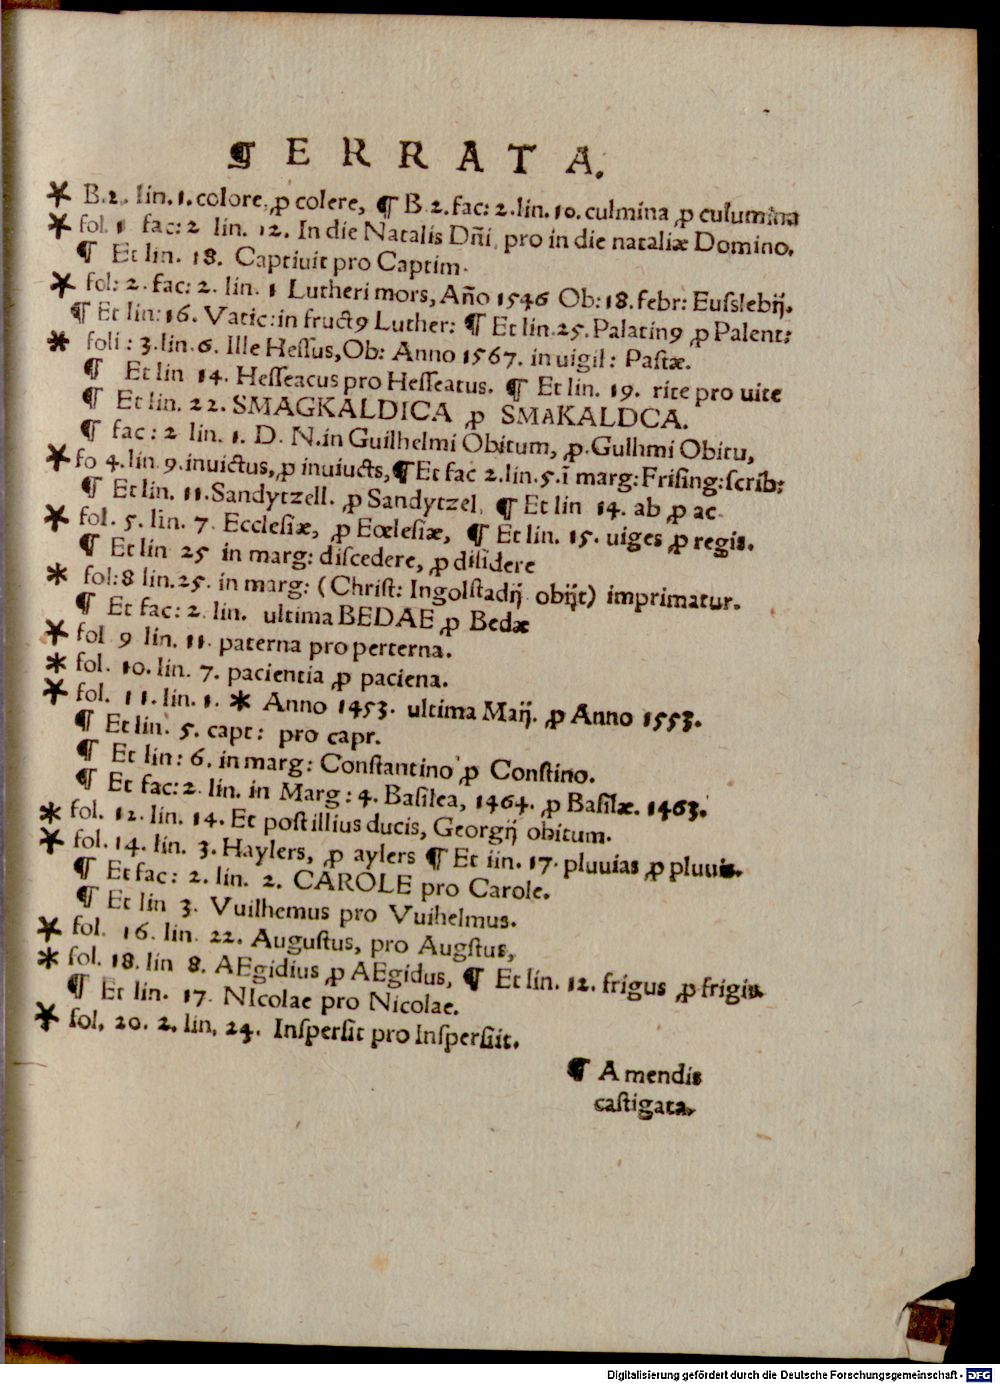 ¶ ERRATA.
* B.2. lin. 1. colore, ꝓ colere, ¶ B 2. fac: 2. lin. 10. culmina ꝓ culumina
* fol. 1 fac: 2 lin. 12. In die Natalis Dn̄i, pro in die nataliæ Domino.
¶ Et lin. 18. Captiuit pro Captim.
* fol: 2. fac: 2. lin. 1 Lutheri mors, Año 1546 Ob: 18. febr: Euſslebij.
¶ Et lin: 16. Vatic: in fructꝰ Luther: ¶ Et lin. 25. Palatinꝰ ꝓ Palent:
* foli: 3. lin. 6. Ille Heſſus, Ob: Anno 1567. in uigil: Paſtæ.
¶ Et lin 14. Heſſeacus pro Heſſeatus. ¶ Et lin. 19. rite pro uite
¶ Et lin. 22. SMAGKALDICA ꝓ SMAKALDCA.
¶ fac: 2 lin. 1. D. N. in Guilhelmi Obitum, ꝓ. Gulhmi Obitu,
* fo 4. lin. 9. inuictus, ꝓ inuiucts, ¶ Et fac 2. lin. 5. ī marg: Friſing: ſcrib:
¶ Et lin. 11. Sandytzell. ꝓ Sandytzel, ¶ Et lin 14. ab ꝓ ac.
* fol. 5. lin. 7. Eccleſiæ, ꝓ Eœleſiæ, ¶ Et lin. 15. uiges ꝓ regis.
¶ Et lin 25 in marg: diſcedere, ꝓ diſidere
* fol: 8 lin. 25. in marg: (Chriſt: Ingolſtadij obijt) imprimatur.
¶ Et fac: 2. lin. ultima BEDAE ꝓ Bedæ
* fol 9 lin. 11. paterna pro perterna.
* fol. 10. lin. 7. pacientia ꝓ paciena.
* fol. 11. lin. 1. * Anno 1453. ultima Maij. ꝓ Anno 1553.
¶ Et lin. 5. capt: pro capr.
¶ Et lin: 6. in marg: Conſtantino ꝓ Conſtino.
¶ Et fac: 2. lin. in Marg: 4. Baſilea, 1464. ꝓ Baſilæ. 1463.
* fol. 12. lin. 14. Et poſt illius ducis, Georgij obitum.
* fol. 14. lin. 3. Haylers, ꝓ aylers ¶ Et iin. 17. pluuias ꝓ pluuis.
¶ Et fac: 2. lin. 2. CAROLE pro Carole.
¶ Et lin 3. Vuilhemus pro Vuihelmus.
* fol. 16. lin. 22. Auguſtus, pro Augſtus,
* fol. 18. lin 8. AEgidius ꝓ AEgidus, ¶ Et lin. 12. frigus ꝓ frigis.
¶ Et lin. 17. NIcolae pro Nicolae.
* fol. 20. 2. lin, 24. Inſperſit pro Inſperſiit.
¶ A mendis
caſtigata.
Digitalisierung gefördert durch die Deutsche Forschungsgemeinschaft - DFG